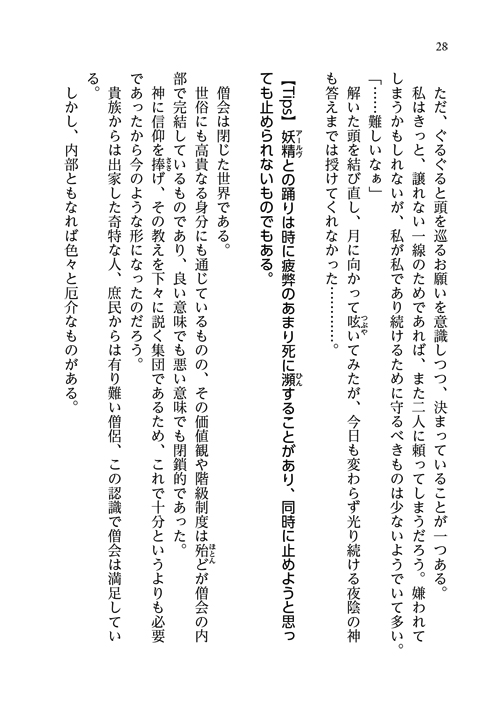 28
ただ、ぐるぐると頭を巡るお願いを意識しつつ、決まっていることが一つある。
私はきっと、譲れない一線のためであれば、また二人に頼ってしまうだろう。嫌われて
しまうかもしれないが、私が私であり続けるために守るべきものは少ないようでいて多い。
「……難しいなぁ」
解いた頭を結び直し、月に向かって呟いてみたが、今日も変わらず光り続ける夜陰の神
も答えまでは授けてくれなかった…………。
【Tips】妖精との踊りは時に疲弊のあまり死に瀕することがあり、同時に止めようと思っ
ても止められないものでもある。
僧会は閉じた世界である。
世俗にも高貴なる身分にも通じているものの、その価値観や階級制度は殆どが僧会の内
部で完結しているものであり、良い意味でも悪い意味でも閉鎖的であった。
神に信仰を捧げ、その教えを下々に説く集団であるため、これで十分というよりも必要
であったから今のような形になったのだろう。
貴族からは出家した奇特な人、庶民からは有り難い僧侶、この認識で僧会は満足してい
る。
しかし、内部ともなれば色々と厄介なものがある。